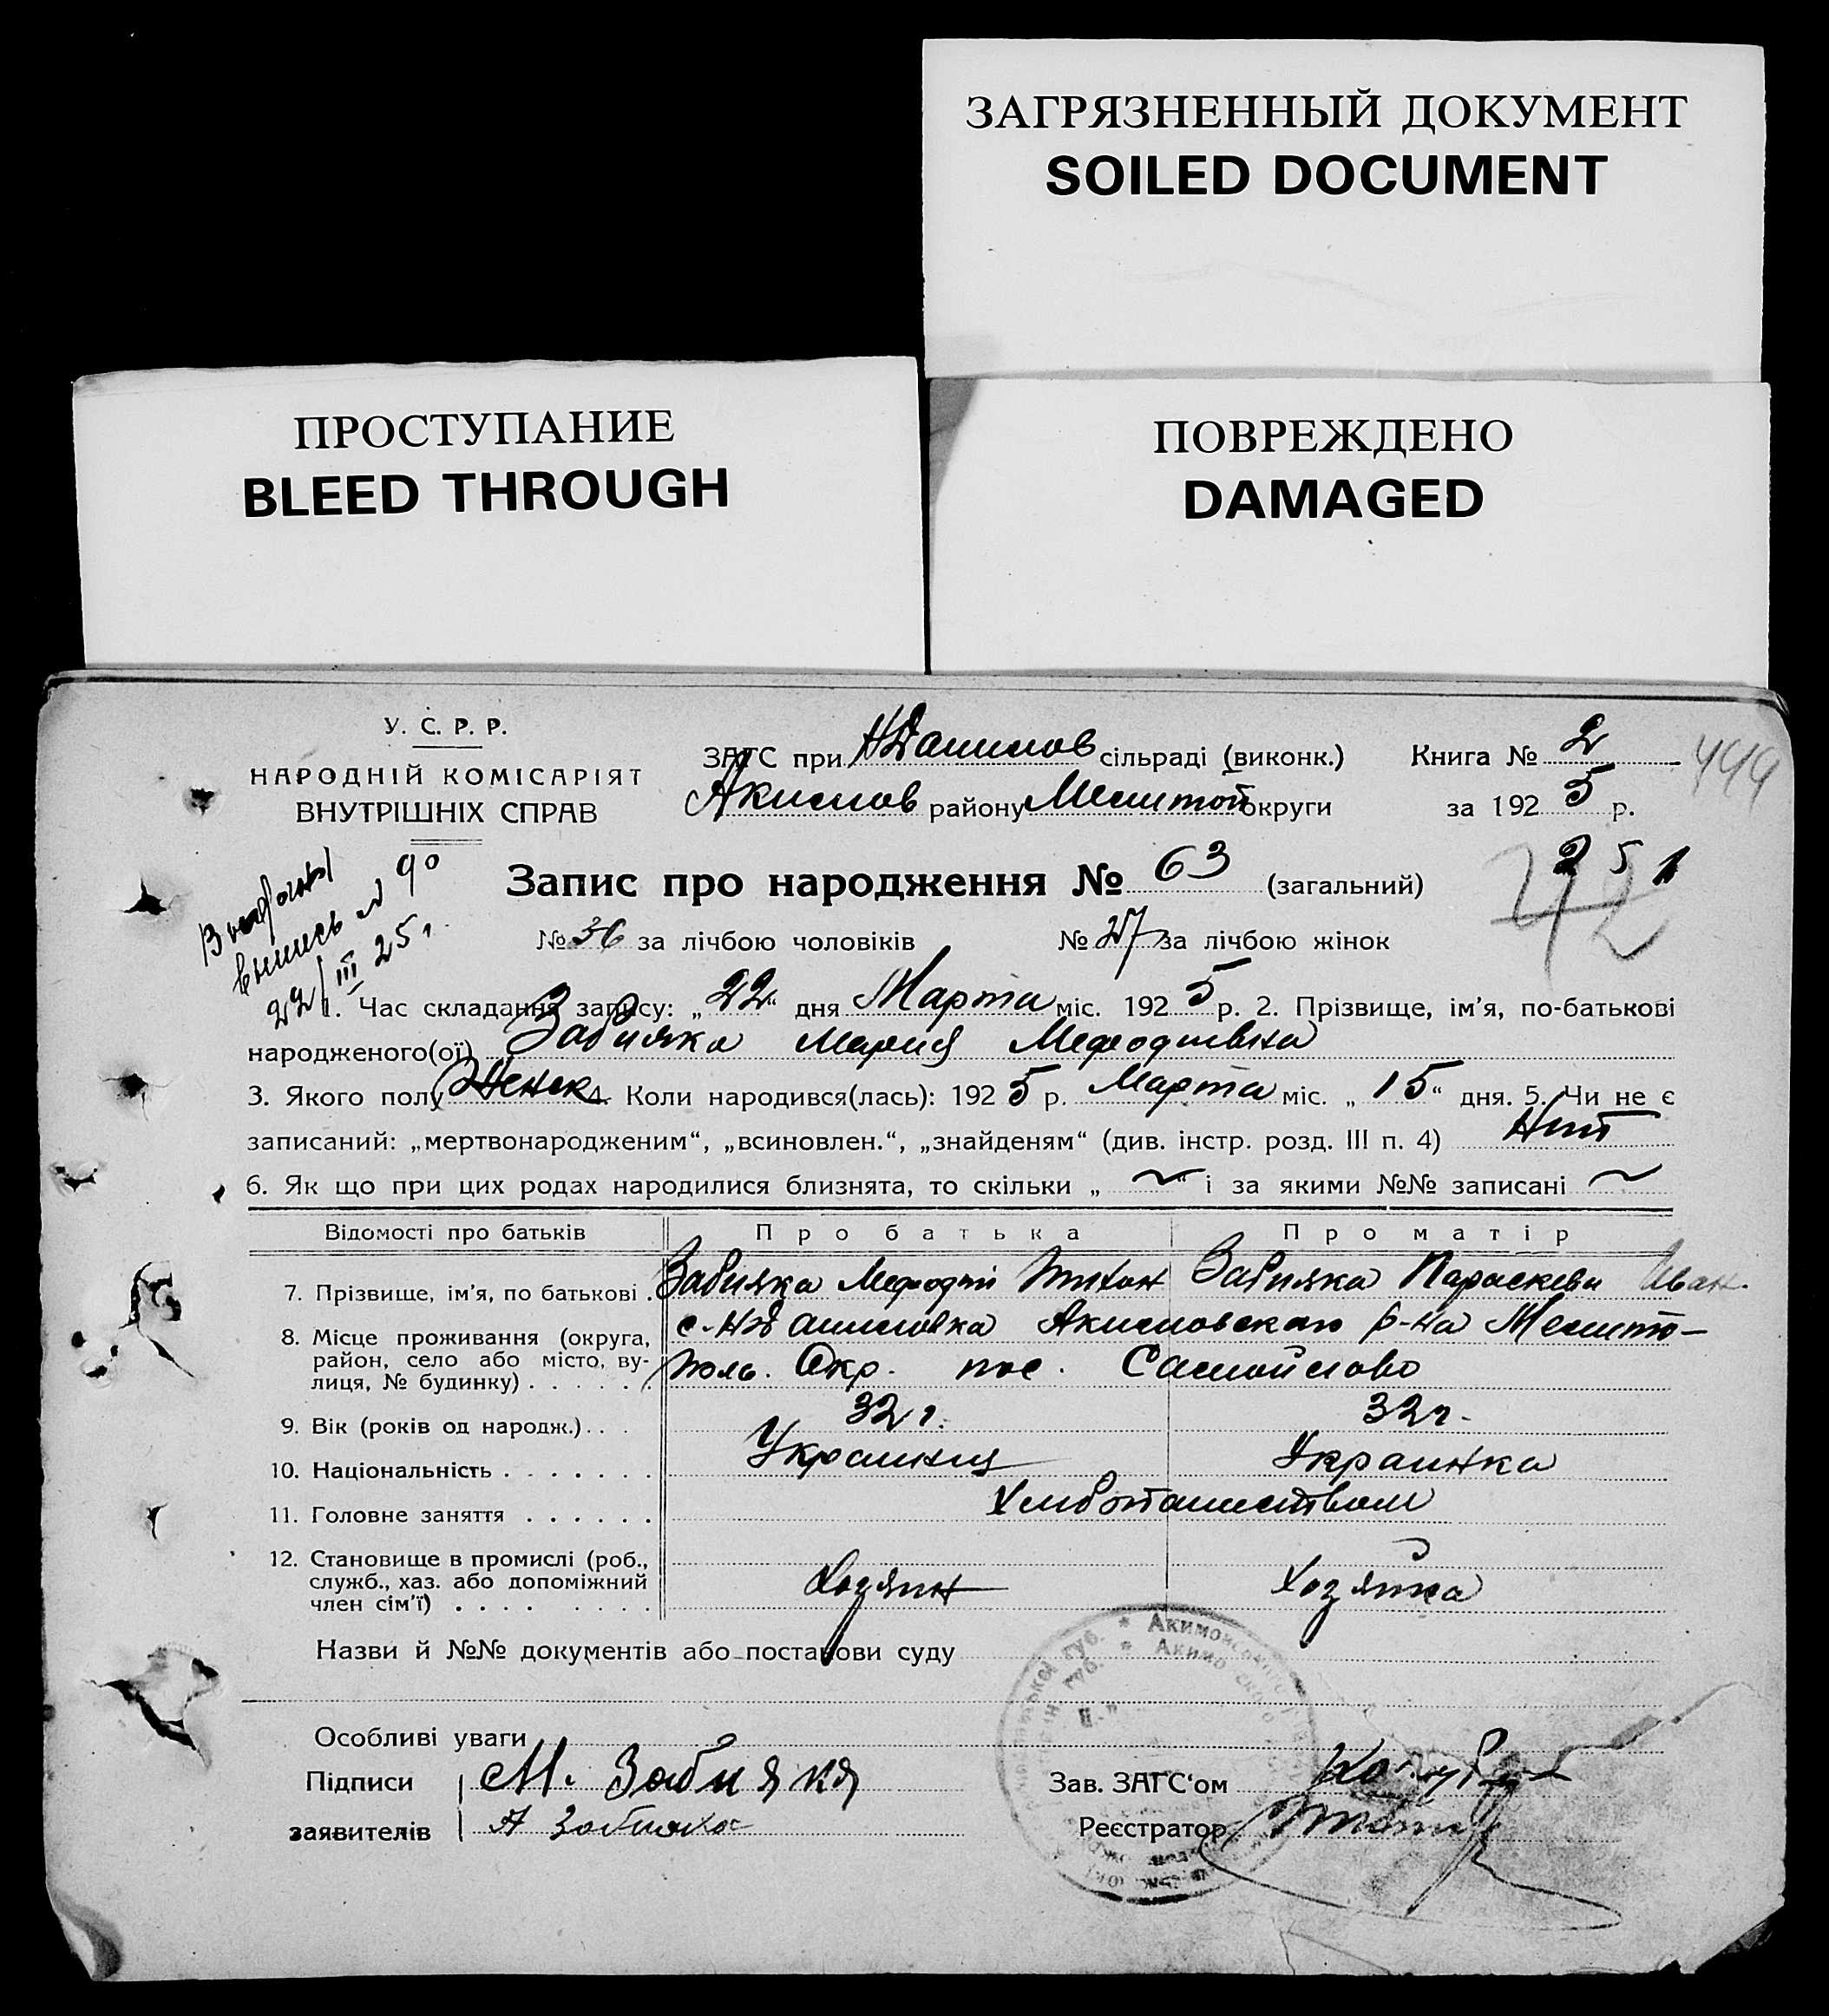 ЗАГРЯЗНЕННЫЙ ДОКУМЕНТ
SOILED DOCUMENT
ПРОСТУПАНИЕ
BLEED THROUGH
ПОВРЕЖДЕНО
DAMAGED
У. С. Р. Р.
НАРОДНІЙ КОМІСАРІЯТ
ВНУТРІШНІХ СПРАВ
ЗАГС при сільраді (виконк.) Книга № 2
449
Акимов району округи за 192 5 р.
Запис про народження № 63 (загальний)
251
42
№ 36 за лічбою чоловіків № 27 за лічбою жінок
выпись № 90
22/III 25 г.
1. Час складання запису: „22“ дня Марта міс. 192 5 р. 2. Прізвище, ім'я, по-батькові
народженого(ої) Забияка Мария Мефодиевна
3. Якого полу Женск 4. Коли народився(лась): 192 5 р. Марта міс. „15“ дня. 5. Чи не є
записаний: „мертвонародженим“, „всиновлен.“, „знайденям“ (див. інстр. розд. III п. 4) Нет
6. Як що при цих родах народилися близнята, то скільки „ ~ “ і за якими №№ записані ~
Відомості про батьків Про батька Про матір
7. Прізвище, ім'я, по батькові . Забияка Мефодий Тихон Забияка Параскева Иван.
8. Місце проживання (округа, район, село або місто, вулиця, № будинку) . . . . . . Акимовского р-на Мелито-
поль. Окр. пос. Самойлово
9. Вік (років од народж.) . . . 32 г. 32 г.
10. Національність . . . . . . . Украинец Украинка
11. Головне заняття . . . . . . Хлебопашеством
12. Становище в промислі (роб., служб., хаз. або допоміжний член сім'ї) . . . . . . . . Хозяин Хозяйка
Назви й №№ документів або постанови суду
Особливі уваги
Підписи М. Забияка Зав. ЗАГС'ом
заявителів А Забияка Реєстратор